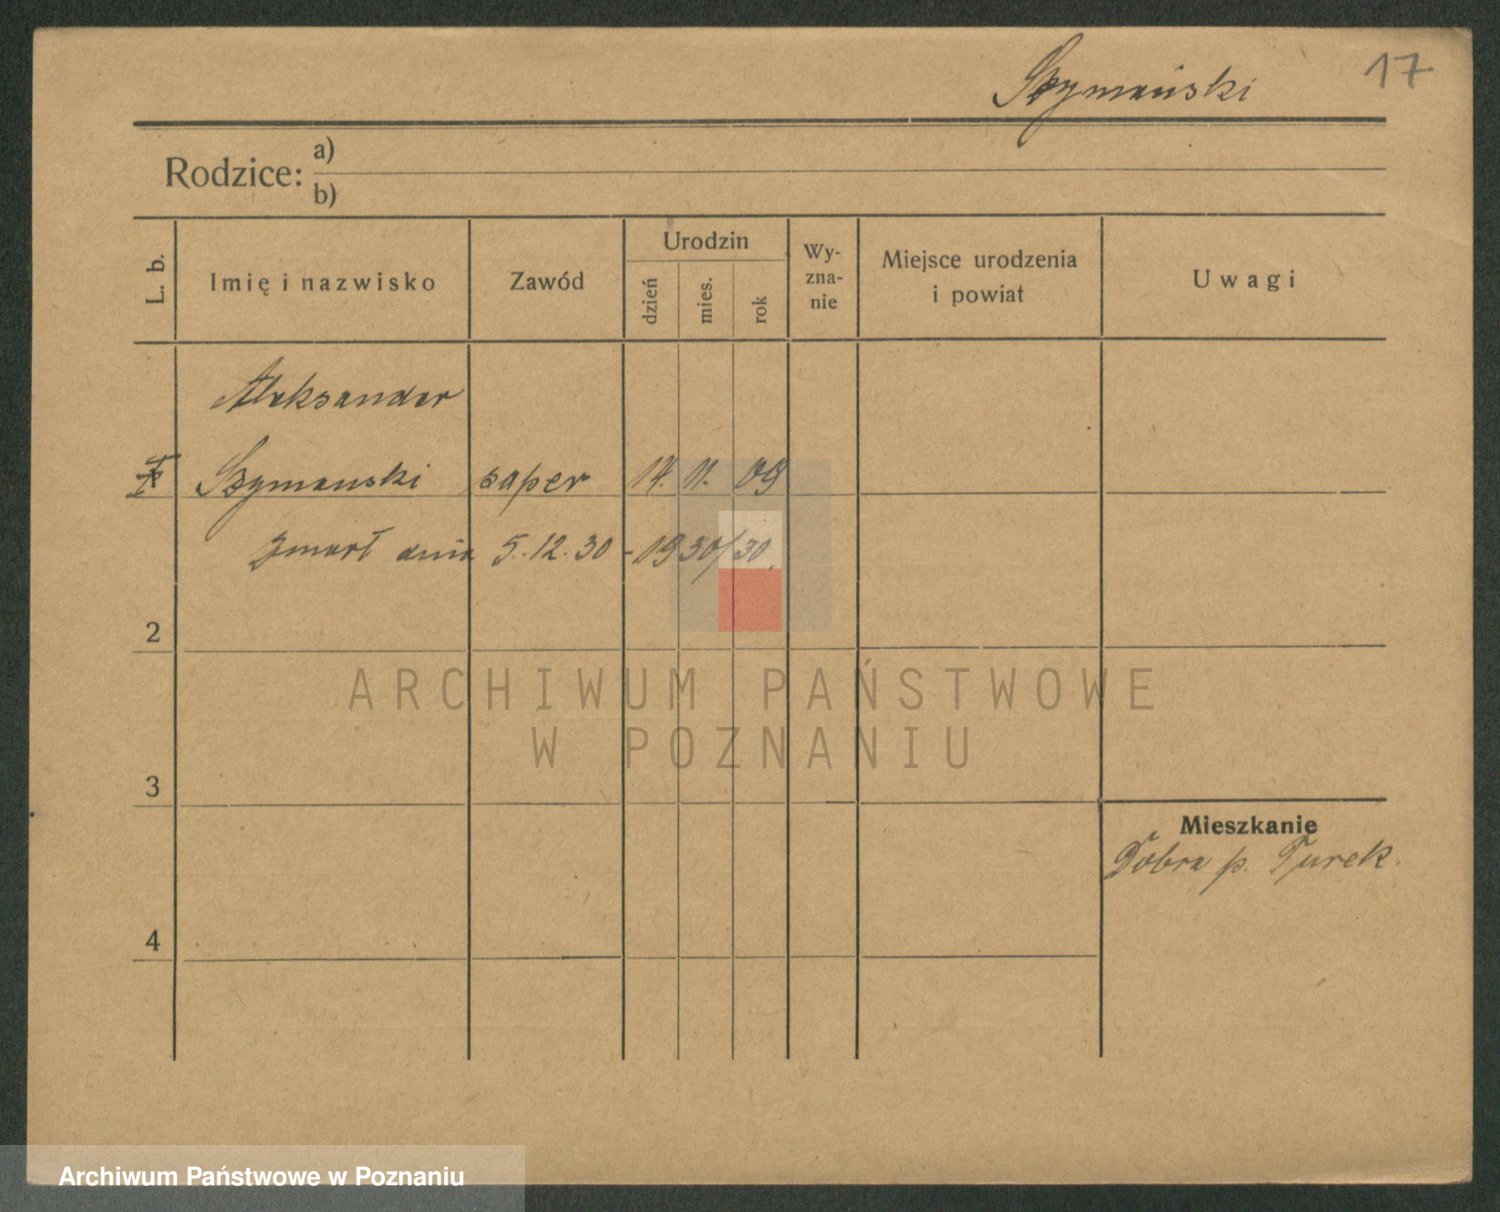 Szymański 17
Rodzice: a)
b)
L. b. Imię i nazwisko Zawód Urodzin dzień mies. rok Wy-zna-nie Miejsce urodzenia i powiat Uwagi
Aleksander
Szymanski saper 17. 11. 09
zmarł dnia 5.12.30 - 1930/30.
2
3
Mieszkanie
Dobra p. Turek.
4
ARCHIWUM PAŃSTWOWE
W POZNANIU
Archiwum Państwowe w Poznaniu